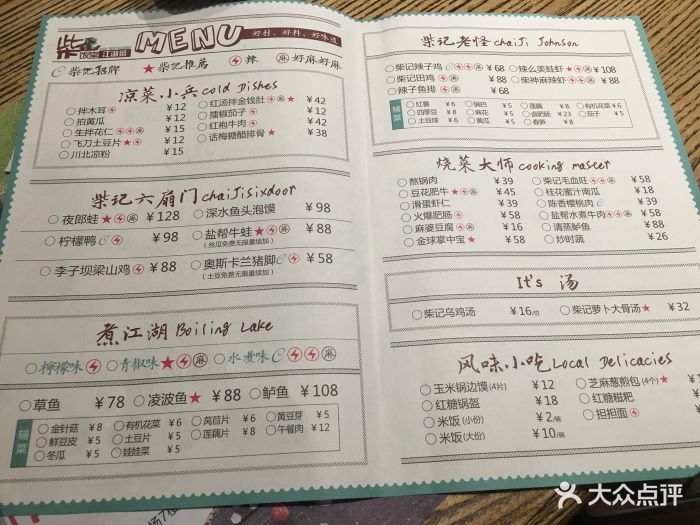 柴 饭堂 江湖菜 MENU 好材、好料、好味道
柴记招牌 ★柴记推薦 辣 麻 好麻好麻
凉菜小兵 cold Dishes
拌木耳 ¥12
拍黄瓜 ¥12
生拌花仁 麻 ¥15
飞刀土豆片★ ¥12
川北凉粉 ¥15
红汤拌金钱肚 麻★ ¥42
擂椒茄子 ¥12
红袍牛肉 ¥42
话梅糖醋排骨★ ¥38
柴记六扇门 chaiJisixdoor
夜郎蛙★ 麻 ¥128
深水鱼头泡馍 ¥98
柠檬鸭 ¥98
盐帮牛蛙★ 麻 ¥88
(丝瓜免费无限量续加)
李子坝梁山鸡 ¥88
奥斯卡兰猪脚 ¥58
(土豆免费无限量续加)
煮江湖 Boiling Lake
柠檬味 青椒味★ 麻 水煮味 麻
草鱼 ¥78 凌波鱼★ ¥88 鲈鱼 ¥108
辅菜
金针菇 ¥8 有机花菜 ¥6 莴苣片 ¥6 黄豆芽 ¥5
鲜豆皮 ¥5 土豆片 ¥5 莲藕片 ¥8 午餐肉 ¥12
冬瓜 ¥5 娃娃菜 ¥5
柴记老怪 chaiJi Johnson
柴记辣子鸡 麻 ¥68
柴记田鸡 麻 ¥88
辣子鱼排 麻 ¥68
辣么美蛙虾★ 麻 ¥108
柴神麻辣虾 麻 ¥88
辅菜
红薯 ¥6 锅巴 ¥5 莲藕 ¥8 有机花菜 ¥6
四季豆 ¥8 麻花 ¥5 卤肥肠 ¥23 茄子 ¥5
土豆球 ¥6 黄瓜 ¥5 春笋 ¥8
烧菜大师 cooking master
熬锅肉 ¥39
豆花肥牛★ 麻 ¥45
滑蛋虾仁 ¥39
火爆肥肠 ¥58
麻婆豆腐 麻 ¥16
金球掌中宝★ ¥58
柴记毛血旺 麻 ¥58
桂花蜜汁南瓜 ¥18
陈香樱桃肉 ¥39
盐帮水煮牛肉 麻 ¥58
清蒸鲈鱼 ¥88
炒时蔬 ¥26
It's 汤
柴记乌鸡汤 ¥16/位
柴记萝卜大骨汤★ ¥32
风味小吃 Local Delicacies
玉米锅边馍(4片) ¥12
红糖锅盔 ¥18
米饭(小份) ¥2/碗
米饭(大份) ¥10/
芝麻葱煎包(4个)★
红糖糍粑
担担面
大众点评